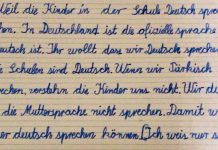 Weil die Kinder in der Schule Deutsch sprec
len. In Deutschland ist die ofizielle sprache
eutsch ist. Ihr wollt dass wir Deutsch sprechen
Schulen sind Deutsch. Wenn wir Türkisch
rechen, verstehn die Kinder uns nicht. Wir dü
die Muttersprache nicht sprechen. Damit w
er deutsch sprechen können. Ich weis nur s